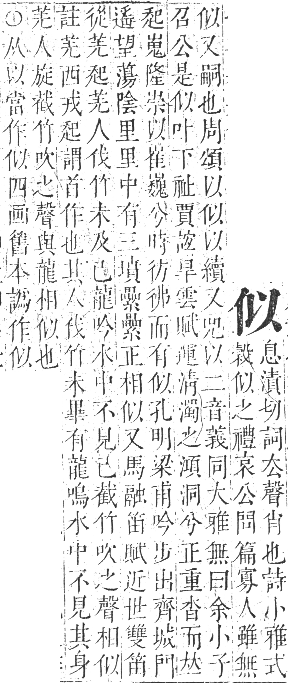 似
息漬切詞去聲肖也詩小雅式
穀似之禮哀公問篇寡人雖無
似又嗣也周頌以似以續又兕以二音義同大雅無曰余小子
召公是似叶下祉賈誼旱雲賦運清濁之澒洞兮正重沓而𠀤
起嵬隆崇以崔巍兮時彷彿而有似孔明梁甫吟步出齊城門
遙望蕩陰里里中有三墳纍纍正相似又馬融笛賦近世雙笛
從羌起羌人伐竹未及已龍吟水中不見已截竹吹之聲相似
註羌西戎起謂首作也其人伐竹未畢有龍鳴水中不見其身
羌人旋截竹吹之聲與龍相似也
①从㠯當作似四画舊本譌作似